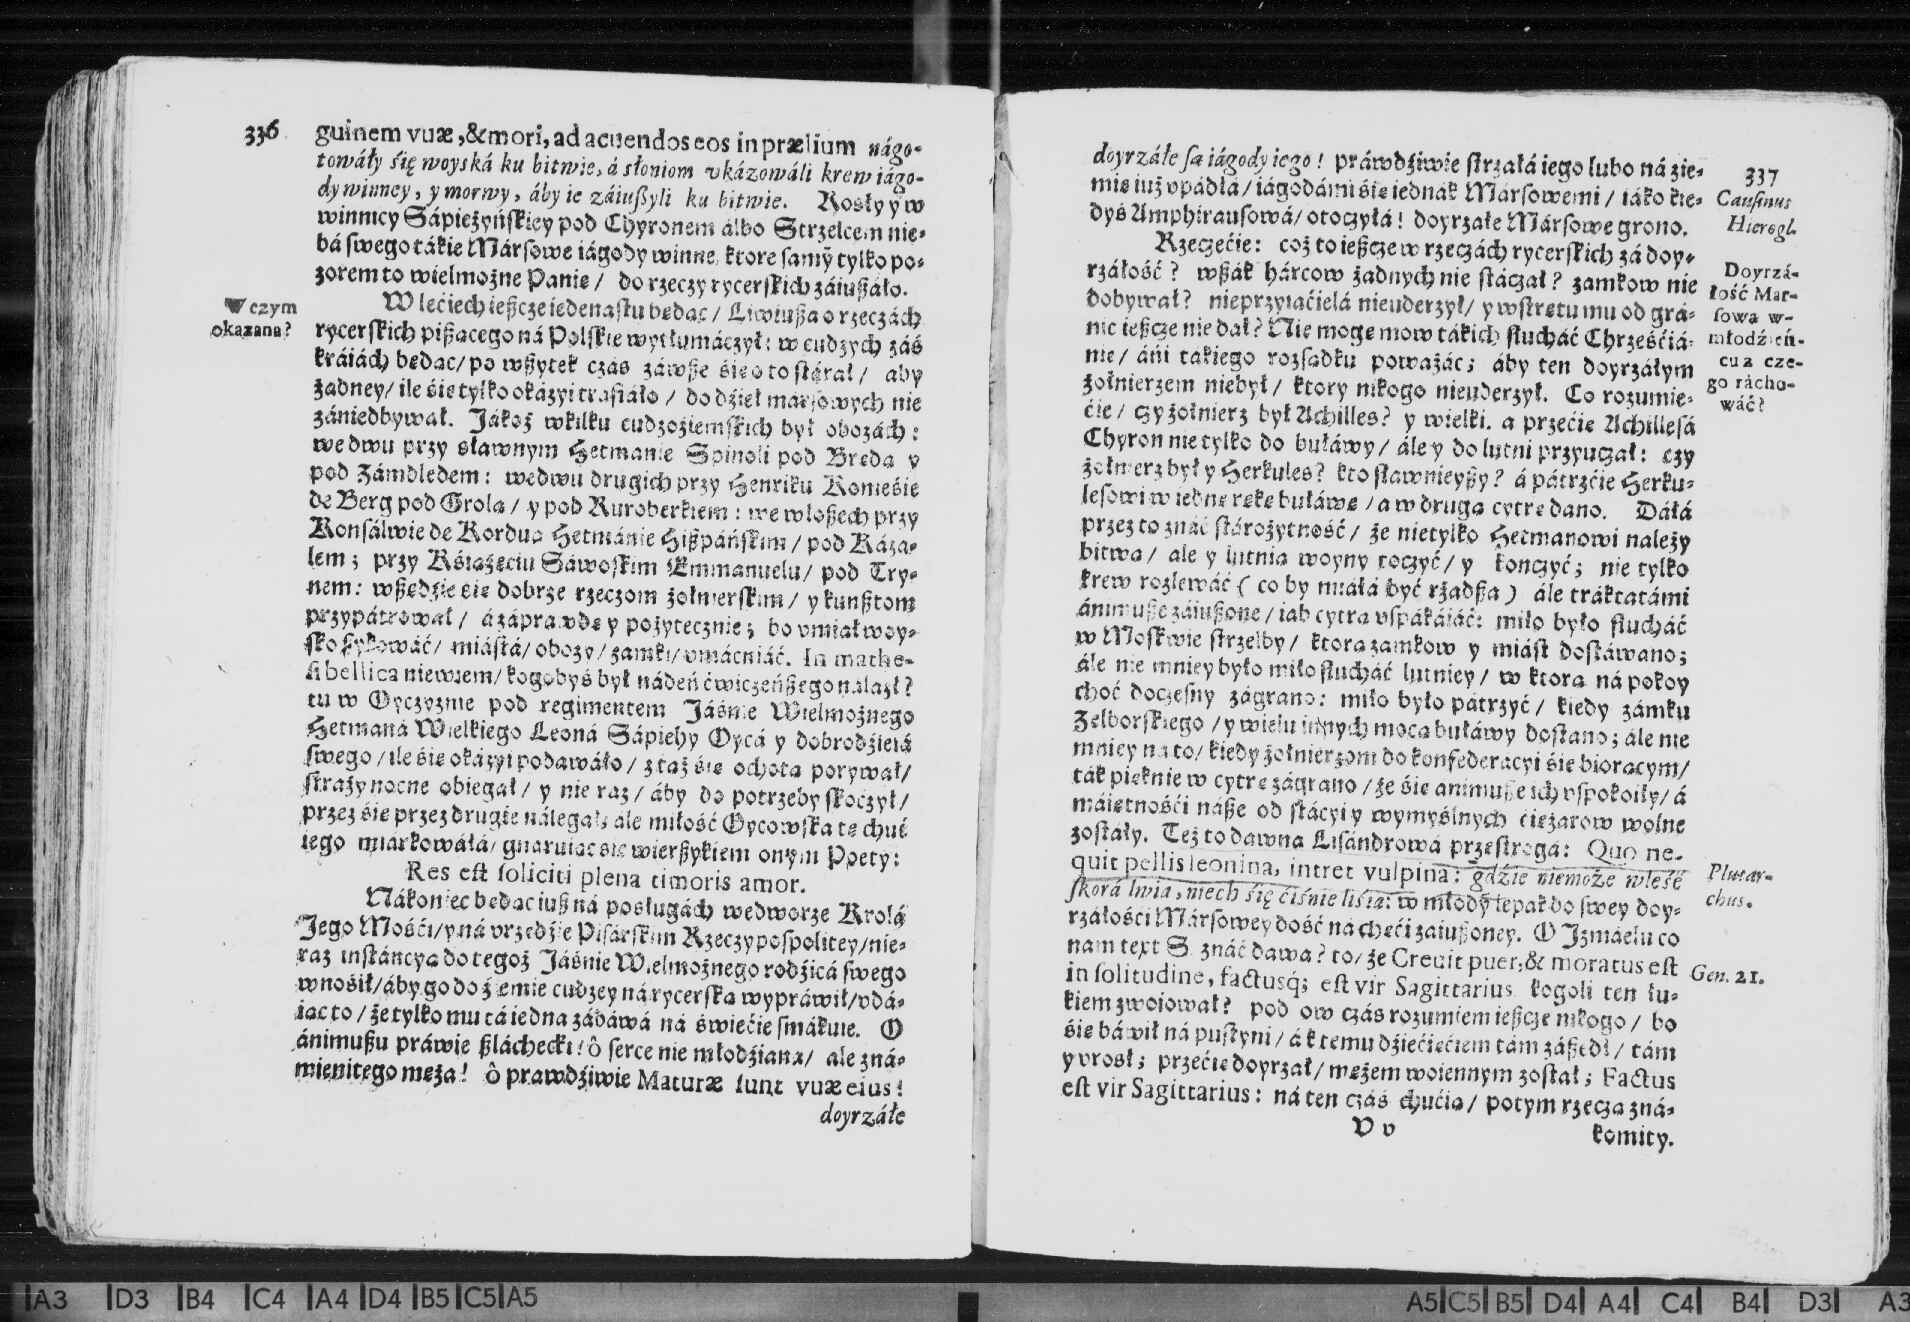 336
guinem vuæ, & mori, ad acuendos eos in prælium nágo-
towáły śię woyská ku bitwie, á słoniom vkázowáli krew iágo-
dy winney, y morwy, áby ie záiußyli ku bitwie. Rosły y w
winnicy Sápieżyńskiey pod Chyronem álbo Strzelcem nie-
bá swego tákie Mársowe iágody winne, ktore samÿ tylko po-
zorem to wielmożne Panie / do rzeczy rycerskich záiußáło.
W czym
okazana?
W leciech ießcze iedenastu będąc / Liwiußa o rzeczách
rycerskich pißącego ná Polskie wytłumáczył: w cudzych záś
kráiách będąc / po wßytek czás záwße się o to stárał / aby
żadney / ile się tylko okázyi trafiáło / do dźieł marsowych nie
zániedbywał. Jákoż w kilku cudzoźiemskich był obozách:
we dwu przy sławnym Hetmanie Spinoli pod Bredą y
pod Zámbledem: we dwu drugich przy Henriku Komeśie
de Berg pod Grolą / y pod Ruroberkiem: we Włoßech przy
Konsálwie de Korduá Hetmánie Hißpáńskim / pod Káza-
lem; przy Kśiążęciu Sáwoskim Emmanuelu / pod Try-
nem: wßędźie się dobrze rzeczom żołnierskim / y kunßtom
przypátrował / á záprawdę y pożytecznie; bo vmiał woy-
sko ßykowáć / miástá / obozy / zamki / vmácniáć. In mathe-
si bellica niewiem / kogobyś był nádeń ćwiczeńßego nalazł?
tu w Oyczyznie pod regimentem Jáśnie Wielmożnego
Hetmaná Wielkiego Leoná Sápiehy Oycá y dobrodźieiá
swego / ile się okázyi podawáło / z tąż się ochotą porywał /
straży nocne obiegał / y nie raz / áby do potrzeby skoczył /
przez się przez drugie nálegał; ale miłość Oycowska tę chuć
iego miarkowáłá / gnaruiąc się wierßykiem onym Poety:
Res est soliciti plena timoris amor.
Nákoniec będąc iuß ná posługách we dworze Krolá
Jego Mośći / y ná vrzędźie Pisárskim Rzeczypospolitey / nie-
raz instáncyą do tegoż Jáśnie Wielmożnego rodźicá swego
wnośił / áby go do źiemie cudzey ná rycerską wypráwił / vdá-
iąc to / że tylko mu tá iedna zábáwá ná świećie smákuie. O
ánimußu práwie ßláchecki! ô serce nie młodźiana / ale zná-
mienitego mężá! ô prawdźiwie Maturæ sunt vuæ eius!
doyrzáłe
337
doyrzáłe są iágody iego! práwdźiwie strzałá iego lubo ná źie-
mię iuż vpádłá / iágodámi się iednák Mársowemi / iáko kie-
dyś Amphirausową / otoczyłá! doyrzałe Mársowe grono.
Causinus
Hierogl.
Rzeczećie: coż to ießcze w rzeczách rycerskich zá doy-
rzáłość? wßák hárcow żadnych nie stáczał? zamkow nie
dobywał? nieprzyiaćielá nieuderzył / y wstrętu mu od grá-
nic ießcze nie dał? Nie mogę mow tákich słucháć Chrześćiá-
nie / áni takiego rozsądku poważáć; áby ten doyrzáłym
żołnierzem niebył / ktory nikogo nieuderzył. Co rozumie-
ćie / czy żołnierz był Achilles? y wielki. a przećię Achillesá
Chyron nie tylko do buławy / ále y do lutni przyuczał: czy
żołnierz był y Herkules? kto sławnieyßy? á pátrzćie Herku-
lesowi w iednę rękę buławę / a w drugą cytrę dano. Dáłá
przez to znáć stárożytność / że nietylko Hetmanowi należy
bitwą / ale y lutnią woyny toczyć / y kończyć; nie tylko
krew rozlewáć (co by miáłá być rżadßa) ále tráktatámi
ánimuße záiußone / iáb cytrą vspákáiáć: miło było słucháć
w Moskwie strzelby / ktorą zamkow y miást dostáwano;
ále nie mniey było miło słucháć lutniey / w ktorą ná pokoy
choć doczesny zágrano: miło było pátrzyć / kiedy zámku
Zelborskiego / y wielu innych mocą buławy dostano; ále nie
mniey na to / kiedy żołnierzom do konfederacyi się biorącym /
ták pięknie w cytrę zágrano / że się animuße ich vspokoiły / á
máiętnośći náße od stácyi y wymyślnych ćiężarow wolne
zostáły. Też to dawna Lisándrowá przestrogá: Quo ne-
quit pellis leonina, intret vulpina: gdźie niemoże wleść
skorá lwia, niech się ćiśnie liśia: w młody lepak do swey doy-
rzáłośći Mársowey dość ná chęći zaiußoney. O Jzmáelu co
nam text S. znáć dawa? to / że Creuit puer, & moratus est
in solitudine, factusq́; est vir Sagittarius. kogoli ten łu-
kiem zwoiował? pod ow czás rozumiem ießcze nikogo / bo
się báwił ná pustyni / á k temu dźiećięćiem tám zaßedł / tám
y vrosł; przećię doyrzał / mężem woiennym został; Factus
est vir Sagittarius: ná ten czás chućią / potym rzeczą zná-
Doyrzá-
łość Mar-
sowa w
młodźień-
cu z cze-
go ráchо-
wáć?
Plutar-
chus.
Gen. 21.
V v
komity.